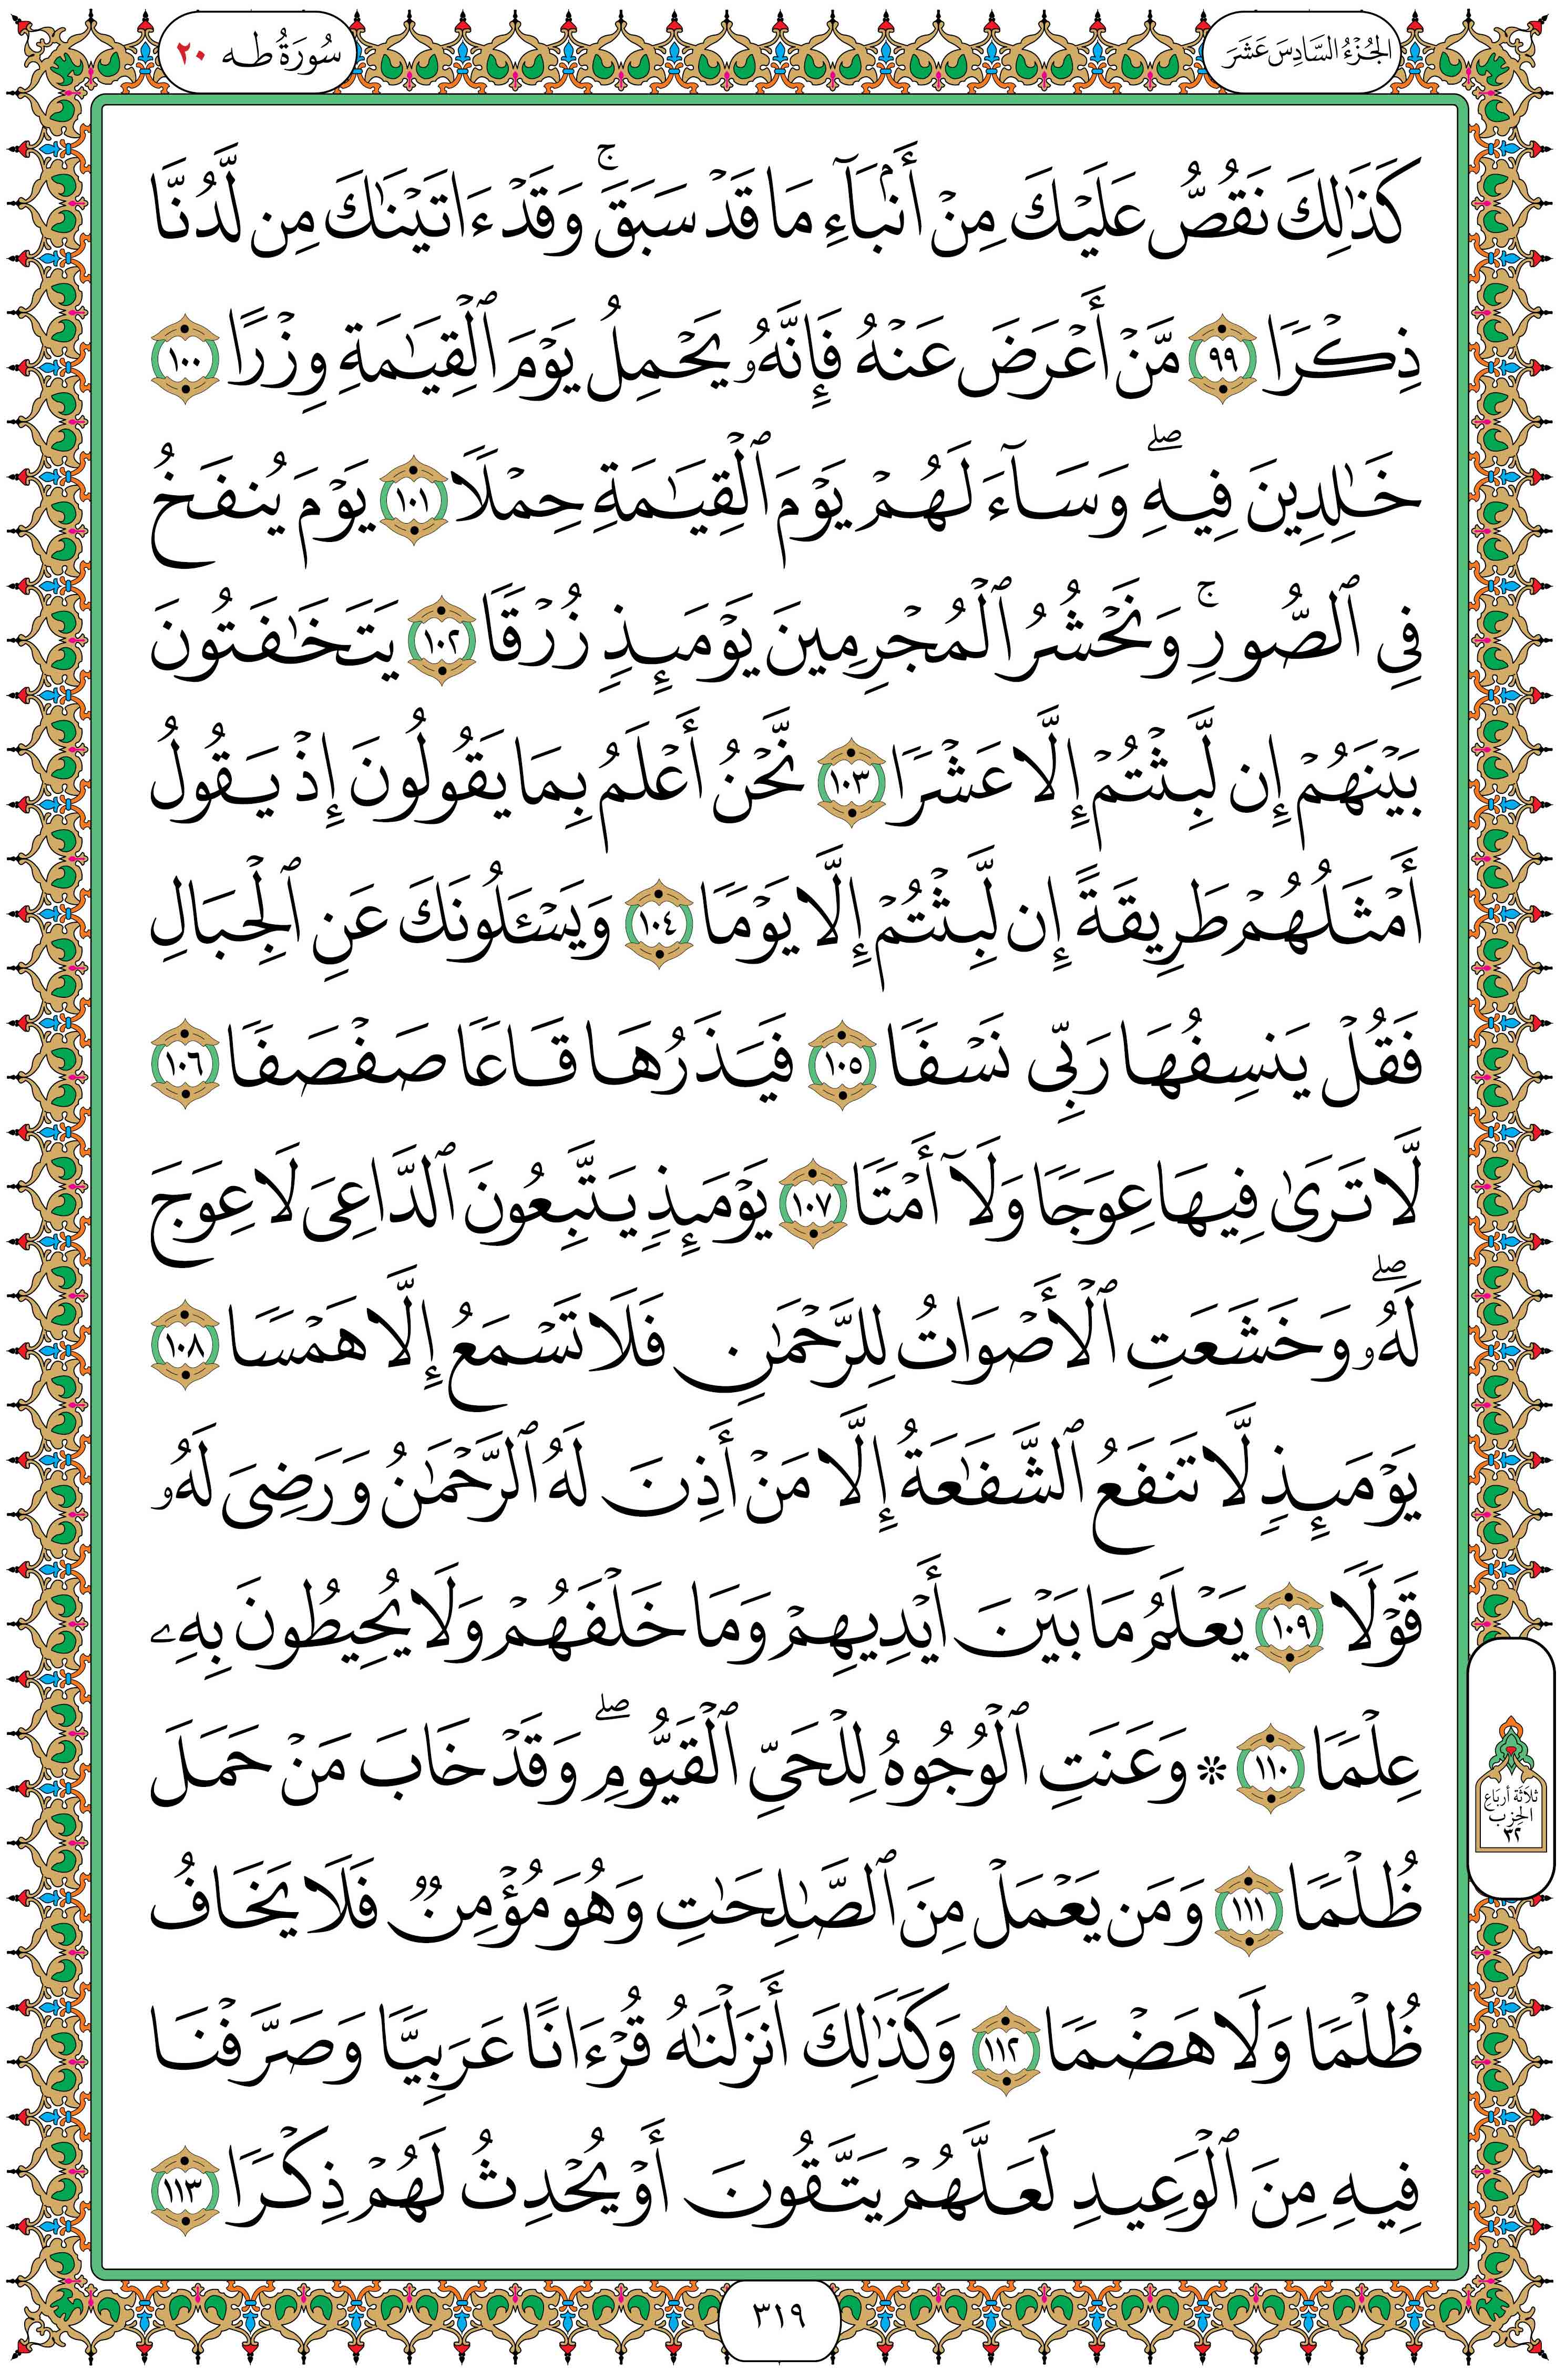 الجُزْءُ السَّادِسَ عَشَرَ
سُورَةُ طه ٢٠
كَذَٰلِكَ نَقُصُّ عَلَيْكَ مِنْ أَنۢبَآءِ مَا قَدْ سَبَقَۚ وَقَدْ ءَاتَيْنَٰكَ مِن لَّدُنَّا
ذِكْرًا ٩٩ مَّنْ أَعْرَضَ عَنْهُ فَإِنَّهُۥ يَحْمِلُ يَوْمَ ٱلْقِيَٰمَةِ وِزْرًا ١٠٠
خَٰلِدِينَ فِيهِۖ وَسَآءَ لَهُمْ يَوْمَ ٱلْقِيَٰمَةِ حِمْلًا ١٠١ يَوْمَ يُنفَخُ
فِى ٱلصُّورِۚ وَنَحْشُرُ ٱلْمُجْرِمِينَ يَوْمَئِذٍ زُرْقًا ١٠٢ يَتَخَٰفَتُونَ
بَيْنَهُمْ إِن لَّبِثْتُمْ إِلَّا عَشْرًا ١٠٣ نَّحْنُ أَعْلَمُ بِمَا يَقُولُونَ إِذْ يَقُولُ
أَمْثَلُهُمْ طَرِيقَةً إِن لَّبِثْتُمْ إِلَّا يَوْمًا ١٠٤ وَيَسْـَٔلُونَكَ عَنِ ٱلْجِبَالِ
فَقُلْ يَنسِفُهَا رَبِّى نَسْفًا ١٠٥ فَيَذَرُهَا قَاعًا صَفْصَفًا ١٠٦
لَّا تَرَىٰ فِيهَا عِوَجًا وَلَآ أَمْتًا ١٠٧ يَوْمَئِذٍ يَتَّبِعُونَ ٱلدَّاعِىَ لَا عِوَجَ
لَهُۥۖ وَخَشَعَتِ ٱلْأَصْوَاتُ لِلرَّحْمَٰنِ فَلَا تَسْمَعُ إِلَّا هَمْسًا ١٠٨
يَوْمَئِذٍ لَّا تَنفَعُ ٱلشَّفَٰعَةُ إِلَّا مَنْ أَذِنَ لَهُ ٱلرَّحْمَٰنُ وَرَضِىَ لَهُۥ
قَوْلًا ١٠٩ يَعْلَمُ مَا بَيْنَ أَيْدِيهِمْ وَمَا خَلْفَهُمْ وَلَا يُحِيطُونَ بِهِۦ
عِلْمًا ١١٠ ۞ وَعَنَتِ ٱلْوُجُوهُ لِلْحَىِّ ٱلْقَيُّومِۖ وَقَدْ خَابَ مَنْ حَمَلَ
ظُلْمًا ١١١ وَمَن يَعْمَلْ مِنَ ٱلصَّٰلِحَٰتِ وَهُوَ مُؤْمِنٌ فَلَا يَخَافُ
ظُلْمًا وَلَا هَضْمًا ١١٢ وَكَذَٰلِكَ أَنزَلْنَٰهُ قُرْءَانًا عَرَبِيًّا وَصَرَّفْنَا
فِيهِ مِنَ ٱلْوَعِيدِ لَعَلَّهُمْ يَتَّقُونَ أَوْ يُحْدِثُ لَهُمْ ذِكْرًا ١١٣
ثلاثة أرباع
الحزب
٣٢
٣١٩